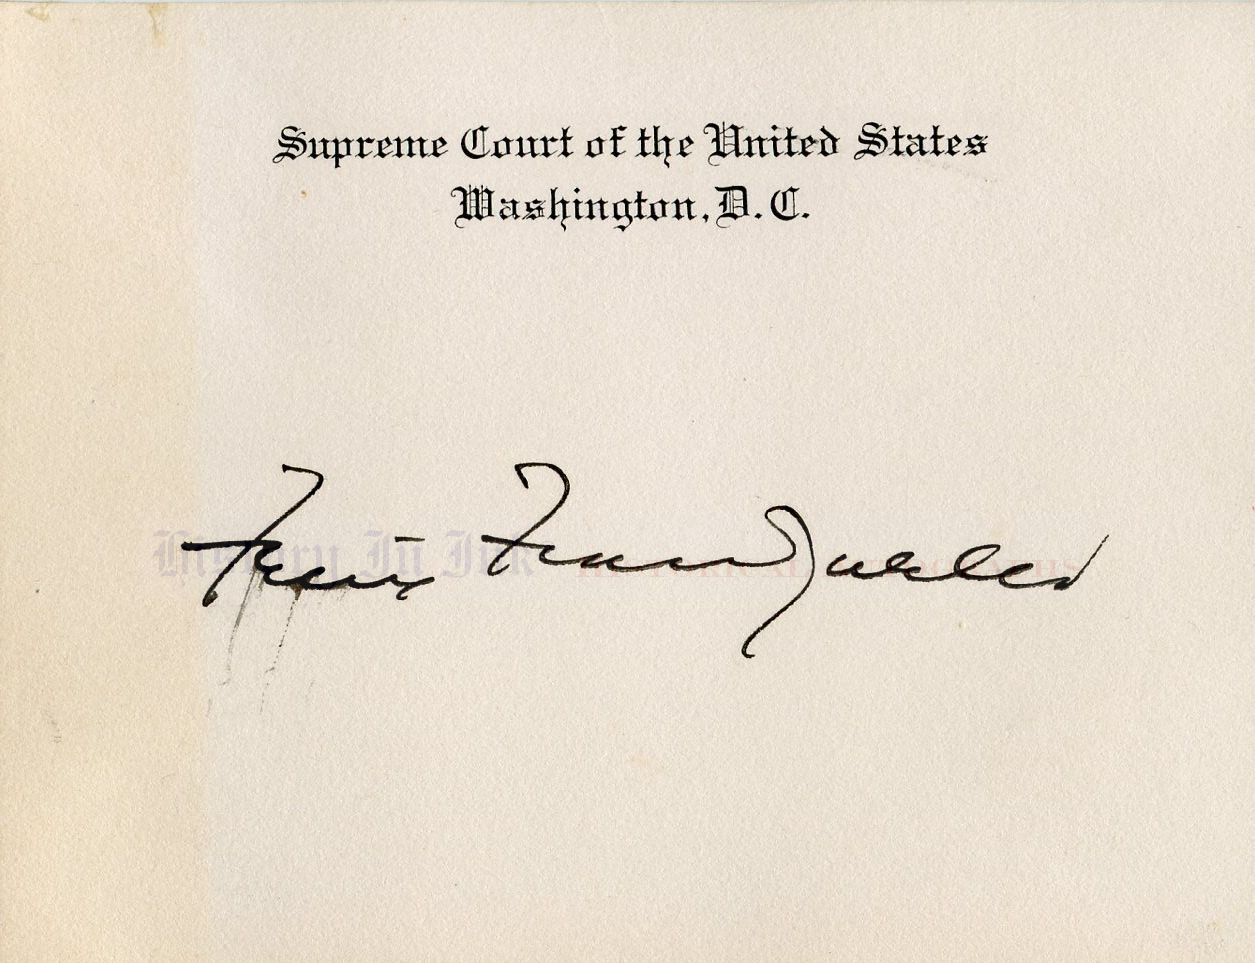 Supreme Court of the United States
Washington, D. C.
Felix Frankfurter
History In Ink HISTORICAL AUTOGRAPHS